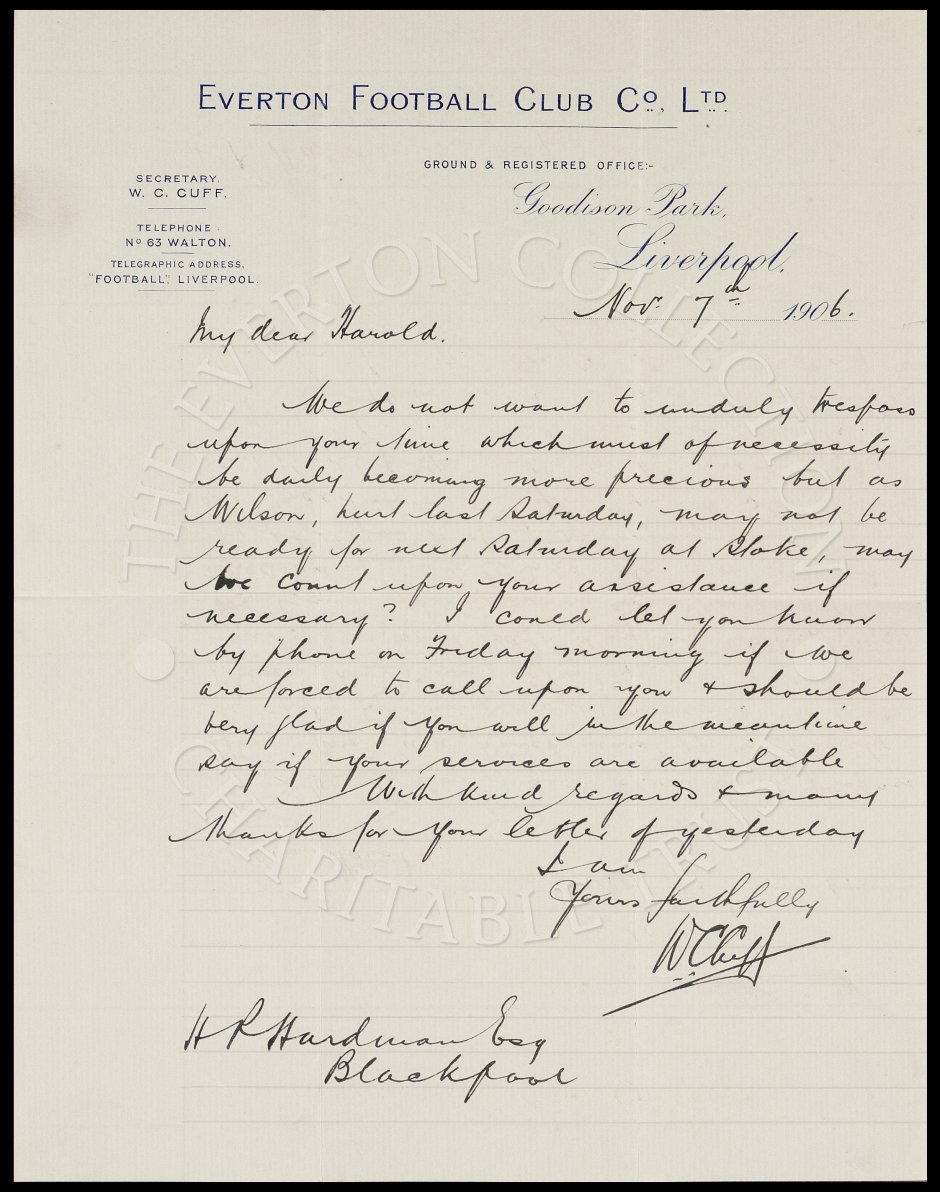 EVERTON FOOTBALL CLUB CO. LTD.
GROUND & REGISTERED OFFICE:-
SECRETARY.
W. C. CUFF.
Goodison Park,
TELEPHONE
No 63 WALTON.
Liverpool,
TELEGRAPHIC ADDRESS,
"FOOTBALL", LIVERPOOL.
Nov. 7th 1906.
My dear Harold.
We do not want to unduly trespass
upon your time which must of necessity
be daily becoming more precious but as
Wilson, hurt last Saturday, may not be
ready for next Saturday at Stoke, may
we count upon your assistance if
necessary? I could let you know
by phone on Friday morning if we
are forced to call upon you & should be
very glad if you will in the meantime
say if your services are available
With kind regards & many
thanks for your letter of yesterday
I am
Yours faithfully
W C Cuff
H P Hardman Esq
Blackpool
THE EVERTON COLLECTION
CHARITABLE TRUST